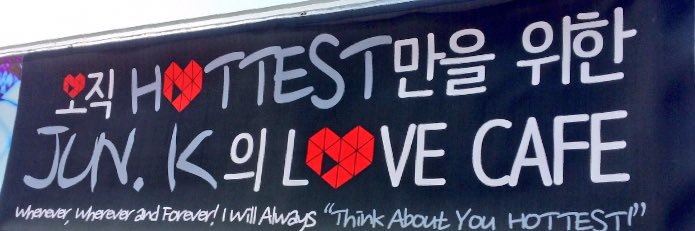 오직 HOTTEST만을 위한
JUN. K의 LOVE CAFE
Whenever, Wherever and Forever! I Will Always "Think About You HOTTEST!"